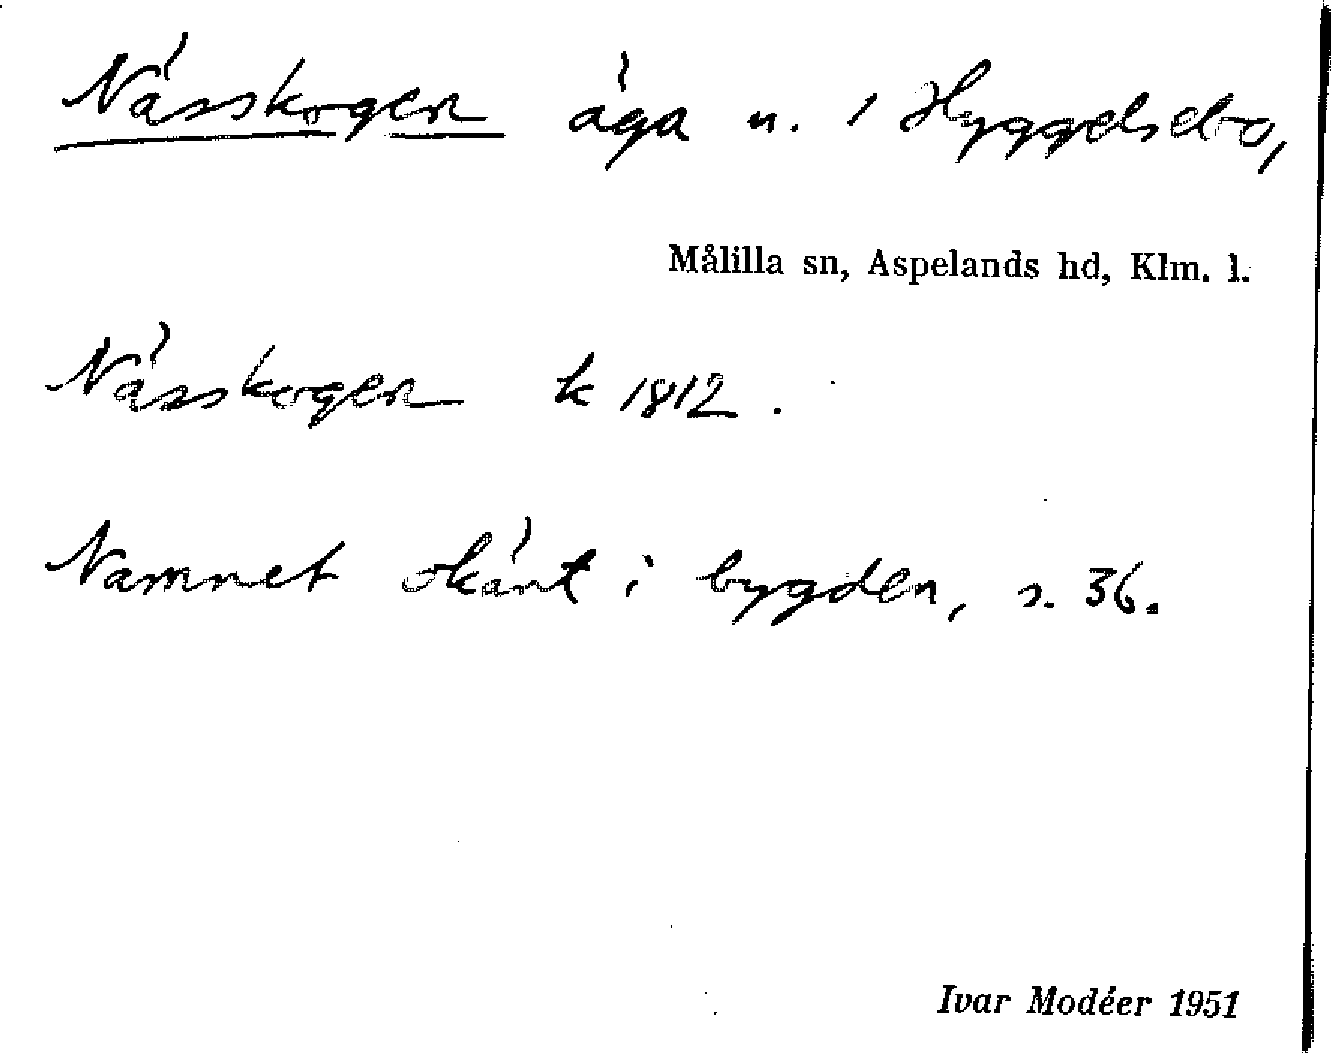 Nässkogen äga n. i Hyggelsebo,
Målilla sn, Aspelands hd, Klm. l.
Nässkogen k 1812.
Namnet okänt i bygden, s. 36.
Ivar Modéer 1951